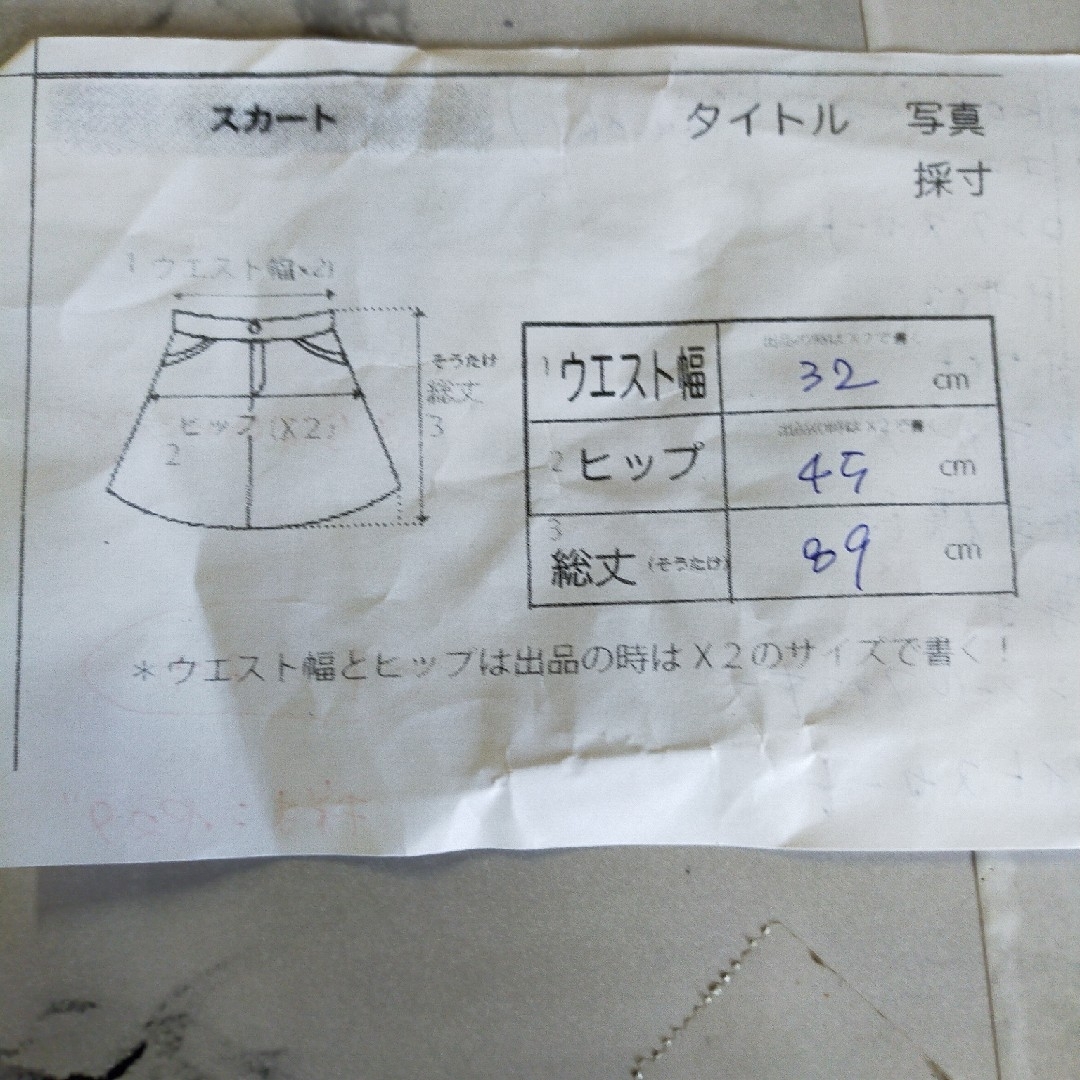 スカート
タイトル 写真
採寸
1 ウエスト幅(x2)
そうたけ
総丈
3
ヒップ(X2)
2
1 ウエスト幅
出品の時はX2で書く
32 cm
2 ヒップ
出品の時はX2で書く
45 cm
3
総丈(そうたけ)
89 cm
*ウエスト幅とヒップは出品の時はX2のサイズで書く!